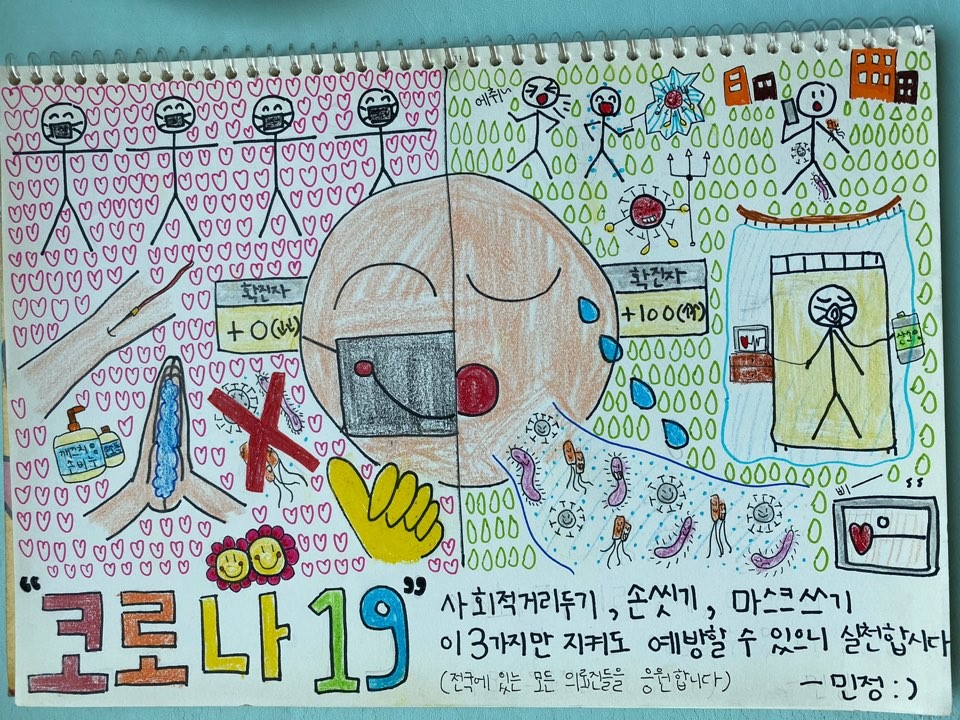 에취~
확진자
+0(명)
확진자
+100(명)
산소
깨끗한
손비누
삐
"코로나 19"
사회적거리두기, 손씻기, 마스크쓰기
이 3가지만 지켜도 예방할 수 있으니 실천합시다
(전국에 있는 모든 의료진들을 응원합니다)
- 민정 : )